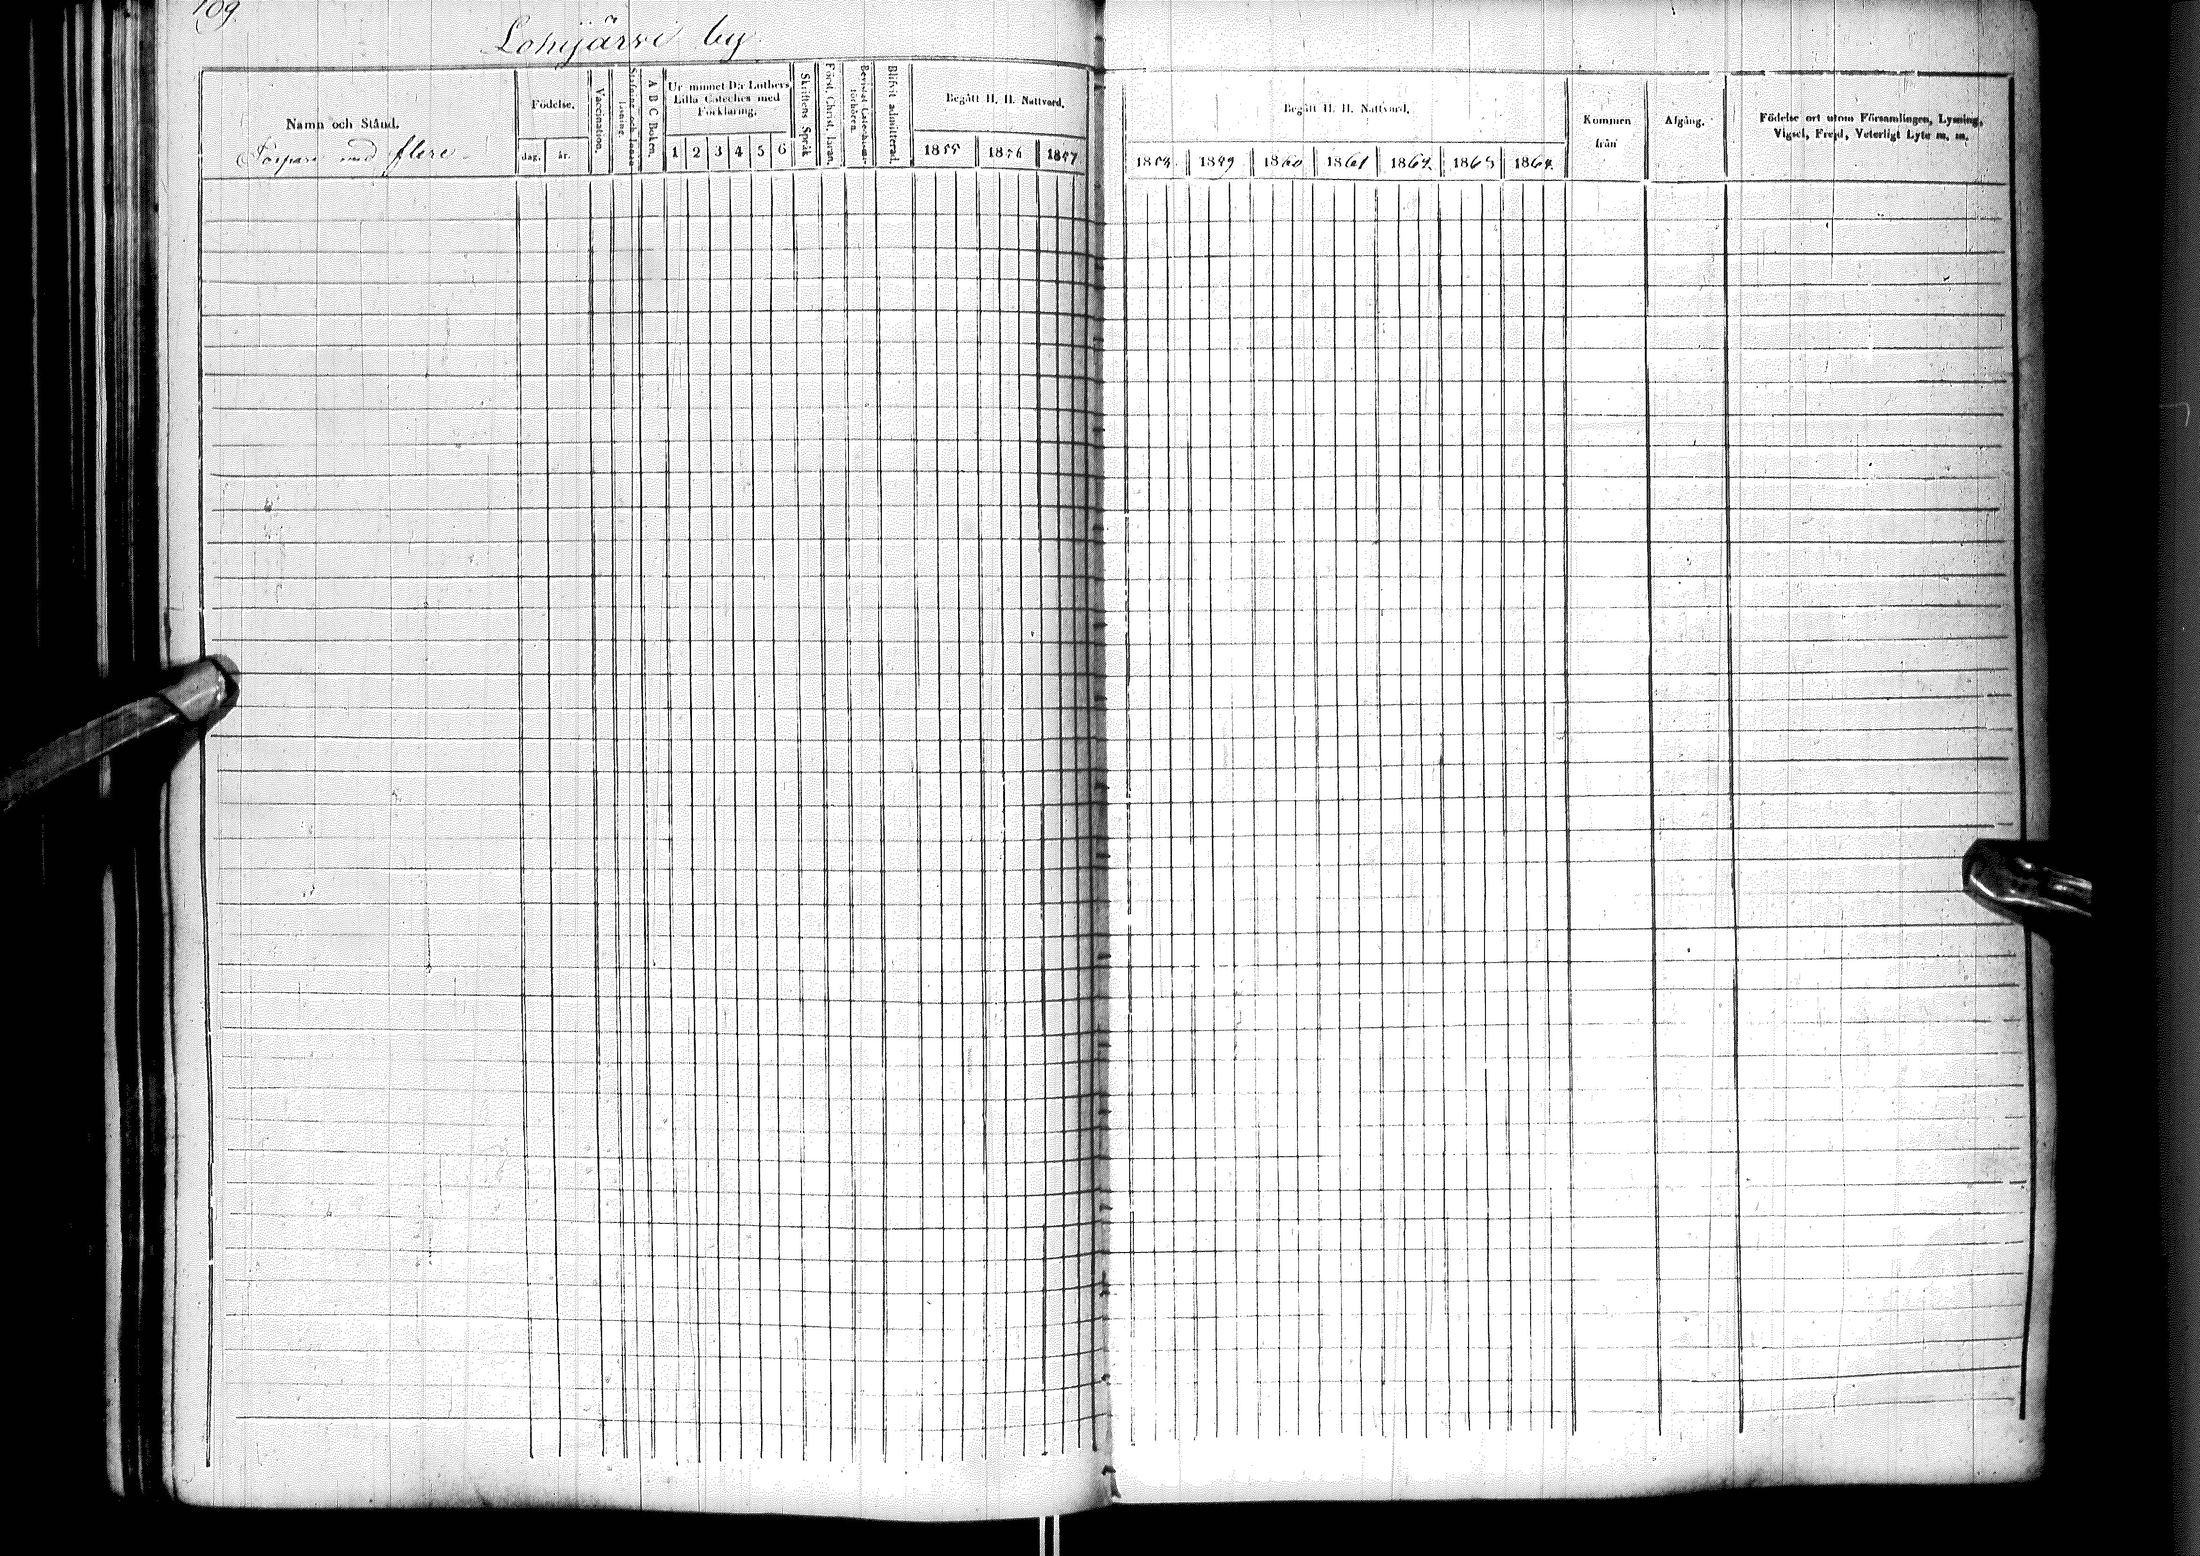 109
Lohijärvi by
Namn och Stånd.
Torpare med flere
Födelse.
dag. år.
Vaccination.
A B C Boken.
Ur minnet D:r Luthers
Lilla Cateches med
Förklaring.
1 2 3 4 5 6
Skriftens Språk
Först. Christ. Läran.
Blifvit admitterad.
Begått H. H. Nattvard.
1855 1856 1857
Begått H. H. Nattvard.
1858 1859 1860 1861 1862 1863 1864
Kommen
från
Afgång.
Födelse ort utom Församlingen, Lysning,
Vigsel, Frejd, Veterligt Lyte m. m.